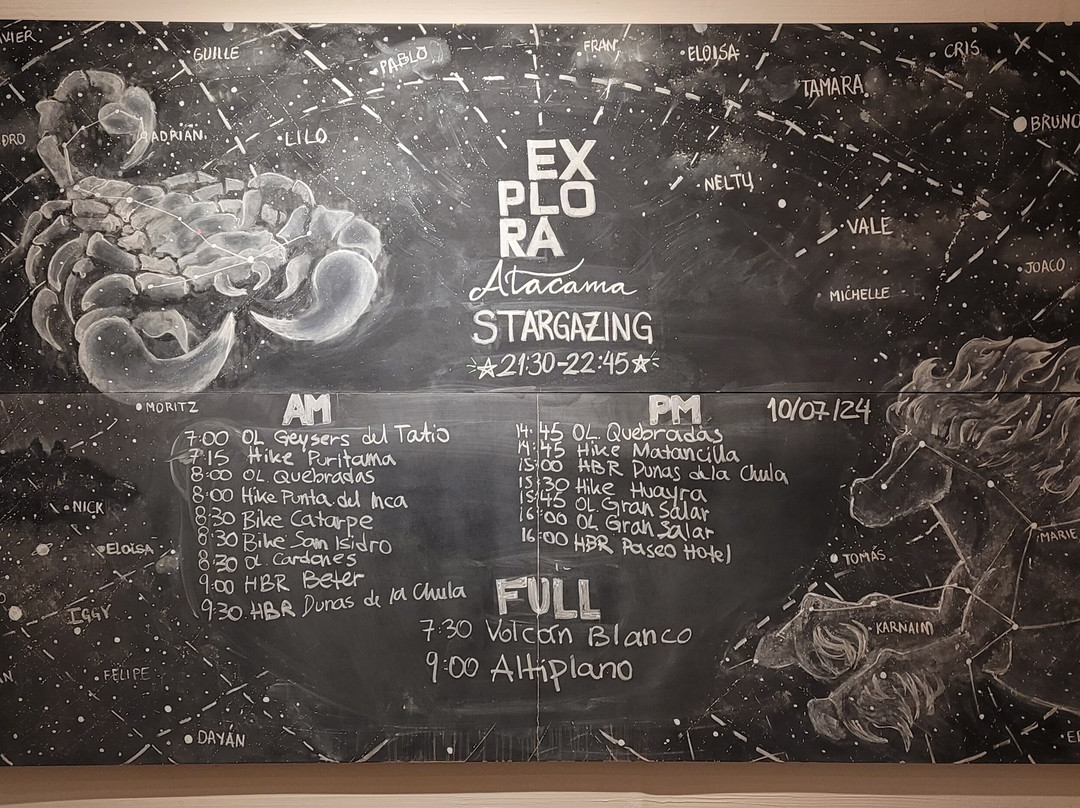 GUILLE
PABLO
FRAN
ELOISA
CRIS
TAMARA
BRUNO
ADRIAN
LILO
NELTU
VALE
JOACO
MICHELLE
EX
PLO
RA
Atacama
STARGAZING
21:30-22:45
MORITZ
AM
7:00 OL Geysers del Tatio
7:15 Hike Puritama
8:00 OL Quebradas
8:00 Hike Punta del Inca
8:30 Bike Catarpe
8:30 Bike San Isidro
8:30 OL Cardones
9:00 HBR Beter
9:30 HBR Dunas de la Chula
PM
10/07/24
14:45 OL Quebradas
14:45 Hike Matancilla
15:00 HBR Dunas de la Chula
15:30 Hike Huayra
15:45 OL Gran Salar
16:00 OL Gran Salar
16:00 HBR Paseo Hotel
FULL
7:30 Volcán Blanco
9:00 Altiplano
NICK
ELOISA
IGGY
FELIPE
DAYÁN
TOMÁS
MARIE
KARNAIM